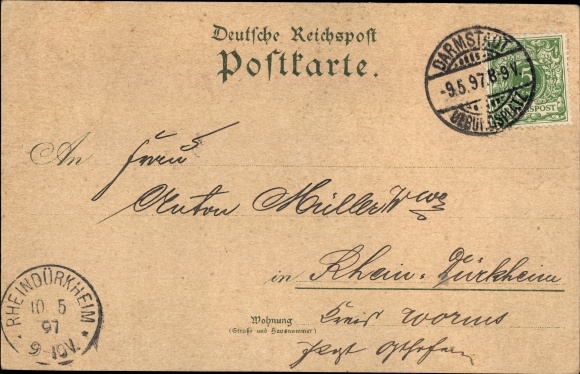 Deutsche Reichspost
Postkarte.
DARMSTADT
-9.5.97.8-9V.
5
POST
An Frau
Anton Müller Wwe
in Rhein-Dürkheim
Wohnung
(Straße und Hausnummer)
Kreis Worms
Post Osthofen
RHEINDÜRKHEIM
10 5
97